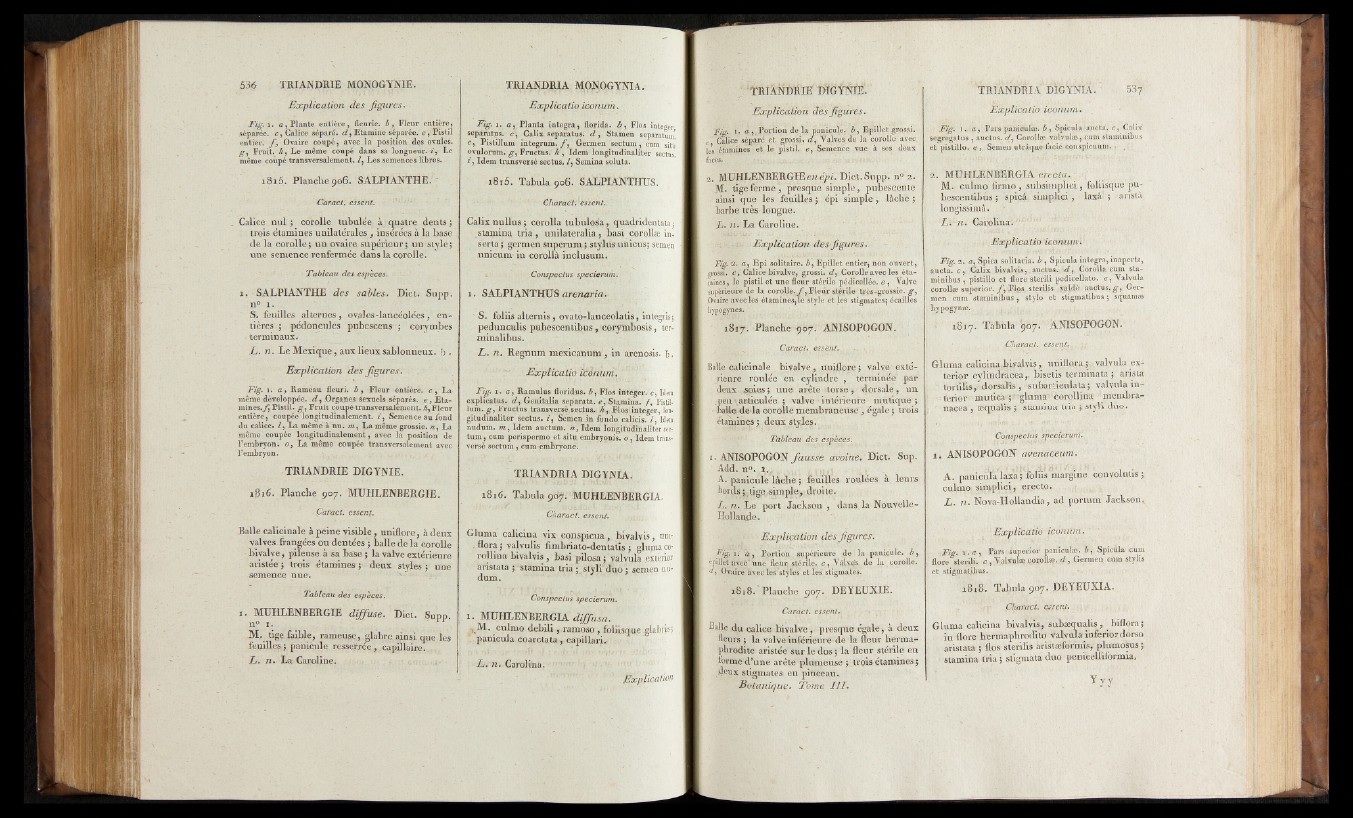 536 TRIANDRIE MONOGYNIE.
Explication des figures.
Fig. 1. a, Plante entière, fleurie. b, Fleur entière,
séparée. c, Calice séparé. d, Etamine séparée. e, Pistil
entier. f, Ovaire coupé, avec la position des ovules.
g, Fruit. h, Le même coupé dans sa longueur. i, Le
même coupé transversalement. l, Les semences libres.
1815. Planche 906. SALPIANTHE.
Caract. essent.
Calice nul ; corolle tubulée à quatre dents ;
trois étamines unilatérales, insérées à la base
de la corolle ; un ovaire supérieur ; un style ;
une semence renfermée dans la corolle.
Tableau des espèces.
1. SALPIANTHE des sables. Dict. Supp.
n° 1.
S. feuilles alternes, ovales-lancéolées, en-
tières ; pédoncules pubescens ; corymbes
terminaux.
L. n. Le Mexique, aux lieux sablonneux. ♄.
Explication des figures.
Fig. 1. a, Rameau fleuri. b, Fleur entière. c, La
même développée. d, Organes sexuels séparés. e, Eta-
mines. f, Pistil. g, Fruit coupé transversalement. h, Fleur
entière, coupée longitudinalement. i, Semence au fond
du calice. l, La même à nu. m, La même grossie. n, La
même coupée longitudinalement, avec la position de
l'embryon. o, La même coupée transversalement avec
l'embryon.
TRIANDRIE DIGYNIE.
1816. Planche 907. MUHLENBERGIE.
Caract. essent.
Balle calicinale à peine visible, uniflore, à deux
valves frangées ou dentées ; balle de la corolle
bivalve, pileuse à sa base ; la valve extérieure
aristée ; trois étamines ; deux styles ; une
semence nue.
Tableau des espèces.
1. MUHLENBERGIE diffuse. Dict. Supp.
n° 1.
M. tige faible, rameuse, glabre ainsi que les
feuilles ; panicule resserrée, capillaire.
L. n. La Caroline.
TRIANDRIA MONOGYNIA.
Explicatio iconum.
Fig. 1. a, Planta integra, florida. b, Flos integer,
separatus. c, Calix separatus. d, Stamen separatum.
e, Pistillum integrum. f, Germen sectum, cum situ
ovulorum. g, Fructus. h, Idem longitudinaliter sectus.
i, Idem transversè sectus. l, Semina soluta.
1815. Tabula 906. SALPIANTHUS.
Charact. essent.
Calix nullus ; corolla tubulosa, quadridentata ;
stamina tria, unilateralia, basi corollæ in-
serta ; germen superum ; stylus unicus ; semen
unicum in corollâ inclusum.
Conspectus specierum.
1. SALPIANTHUS arenaria.
S. foliis alternis, ovato-lanceolatis, integris ;
pedunculis pubescentibus, corymbosis, ter-
minalibus.
L. n. Regnum mexicanum, in arenosis. ♄.
Explicatio iconum.
Fig. 1. a, Ramulus floridus. b, Flos integer. c, Idem
explicatus. d, Genitalia separata. e, Stamina. f, Pistil-
lum. g, Fructus transversè sectus. h, Flos integer, lon-
gitudinaliter sectus. i, Semen in fundo calicis. l, Idem
nudum. m, Idem auctum. n, Idem longitudinaliter sec-
tum, cum perispermo et situ embryonis. o, Idem trans-
versè sectum, cum embryone.
TRIANDRIA DIGYNIA.
1816. Tabula 907. MUHLENBERGIA.
Charact. essent.
Gluma calicina vix conspicua, bivalvis, uni-
flora ; valvulis fimbriato-dentatis ; gluma co-
rollina bivalvis, basi pilosa ; valvula exterior
aristata ; stamina tria ; styli duo ; semen nu-
dum.
Conspectus specierum.
1. MUHLENBERGIA diffusa.
M. culmo debili, ramoso, foliisque glabris ;
panicula coarctata, capillari.
L. n. Carolina.
Explication
TRIANDRIE DIGYNIE.
Explication des figures.
Fig. 1. a, Portion de la panicule. b, Epillet grossi.
c, Calice séparé et grossi. d, Valves de la corolle avec
les étamines et le pistil. e, Semence vue à ses deux
faces.
2. MUHLENBERGIE en épi. Dict. Supp. n° 2.
M. tige ferme, presque simple, pubescente
ainsi que les feuilles ; épi simple, lâche ;
barbe très-longue.
L. n. La Caroline.
Explication des figures.
Fig. 2. a, Epi solitaire. b, Epillet entier, non ouvert,
grossi. c, Calice bivalve, grossi. d, Corolle avec les éta-
mines, le pistil et une fleur stérile pédicellée. e, Valve
supérieure de la corolle. f, Fleur stérile très-grossie. g,
Ovaire avec les étamines, le style et les stigmates ; écailles
hypogynes.
1817. Planche 907. ANISOPOGON.
Caract. essent.
Balle calicinale bivalve, uniflore ; valve exté-
rieure roulée en cylindre, terminée par
deux soies ; une arête torse, dorsale, un
peu articulée ; valve intérieure mutique ;
balle de la corolle membraneuse, égale ; trois
étamines ; deux styles.
Tableau des espèces.
1. ANISOPOGON fausse avoine. Dict. Sup.
Add. n°. 1.
A. panicule lâche ; feuilles roulées à leurs
bords ; tige simple, droite.
L. n. Le port Jackson, dans la Nouvelle-
Hollande.
Explication des figures.
Fig. 1. a, Portion supérieure de la panicule. b,
Epillet avec une fleur stérile. c, Valves de la corolle.
d, Ovaire avec les styles et les stigmates.
1818. Planche 907. DEYEUXIE.
Caract. essent.
Balle du calice bivalve, presque égale, à deux
fleurs ; la valve inférieure de la fleur herma-
phrodite aristée sur le dos ; la fleur stérile en
forme d'une arête plumeuse ; trois étamines ;
deux stigmates en pinceau.
Botanique. Tome III.
TRIANDRIA DIGYNIA. 537
Explicatio iconum.
Fig. 1. a, Pars paniculæ. b, Spicula aucta. c, Calix
segregatus, auctus. d, Corollæ valvulæ, cum staminibus
et pistillo. e, Semen utrâque facie conspicuum.
2. MUHLENBERGIA erecta.
M. culmo firmo, subsimplici, foliisque pu-
bescentibus ; spicâ simplici, laxâ ; aristâ
longissimâ.
L. n. Carolina.
Explicatio iconum.
Fig. 2. a, Spica solitaria. b, Spicula integra, inaperta,
aucta. c, Calix bivalvis, auctus. d, Corolla cum sta-
minibus, pistillo et flore sterili pedicellato. e, Valvula
corollæ superior. f, Flos sterilis valdè auctus. g, Ger-
men cum staminibus, stylo et stigmatibus ; squamæ
hypogynæ.
1817. Tabula 907. ANISOPOGON.
Charact. essent.
Gluma calicina bivalvis, uniflora ; valvula ex-
terior cylindracea, bisetis terminata ; arista
tortilis, dorsalis, subarticulata ; valvula in-
terior mutica ; gluma corollina membra-
nacea, æqualis ; stamina tria ; styli duo.
Conspectus specierum.
1. ANISOPOGON avenaceum.
A. panicula laxa ; foliis margine convolutis ;
culmo simplici, erecto.
L. n. Nova-Hollandia, ad portum Jackson.
Explicatio iconum.
Fig. 1. a, Pars superior paniculæ. b, Spicula cum
flore sterili. c, Valvulæ corollæ. d, Germen cum stylis
et stigmatibus.
1818. Tabula 907. DEYEUXIA.
Charact. essent.
Gluma calicina bivalvis, subæqualis, biflora ;
in flore hermaphrodito valvula inferior dorso
aristata ; flos sterilis aristæformis, plumosus ;
stamina tria ; stigmata duo penicelliformia.
Yyy